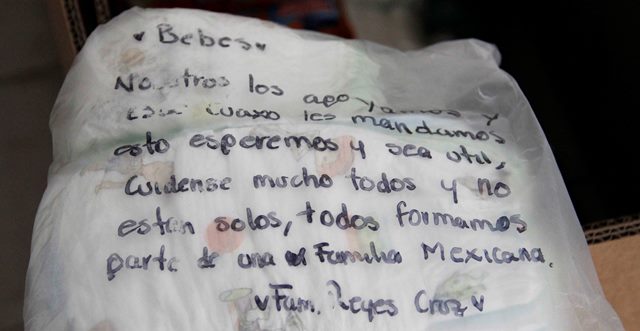 ♥ Bebes ♥
Nosotros los apoyamos y
les mandamos
esto esperemos y sea util,
cuidense mucho todos y no
estan solos, todos formamos
parte de una Familia Mexicana.
♥ Fam. Reyes Cruz ♥